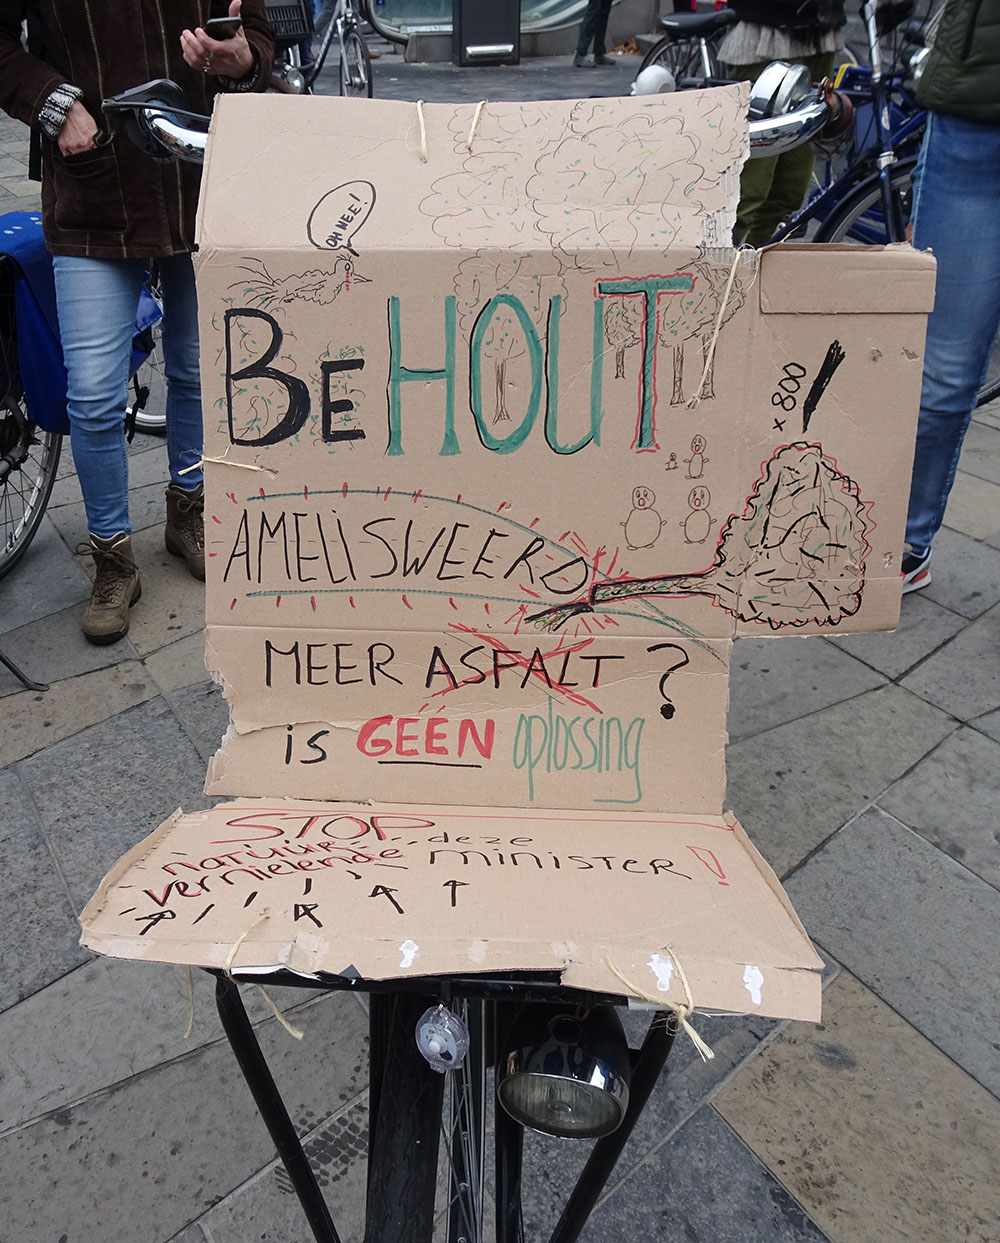 OH NEE!
BEHOUT
x 800 !
AMELISWEERD
MEER ASFALT ?
is GÉÉN oplossing
STOP deze
natuur
vernielende minister !